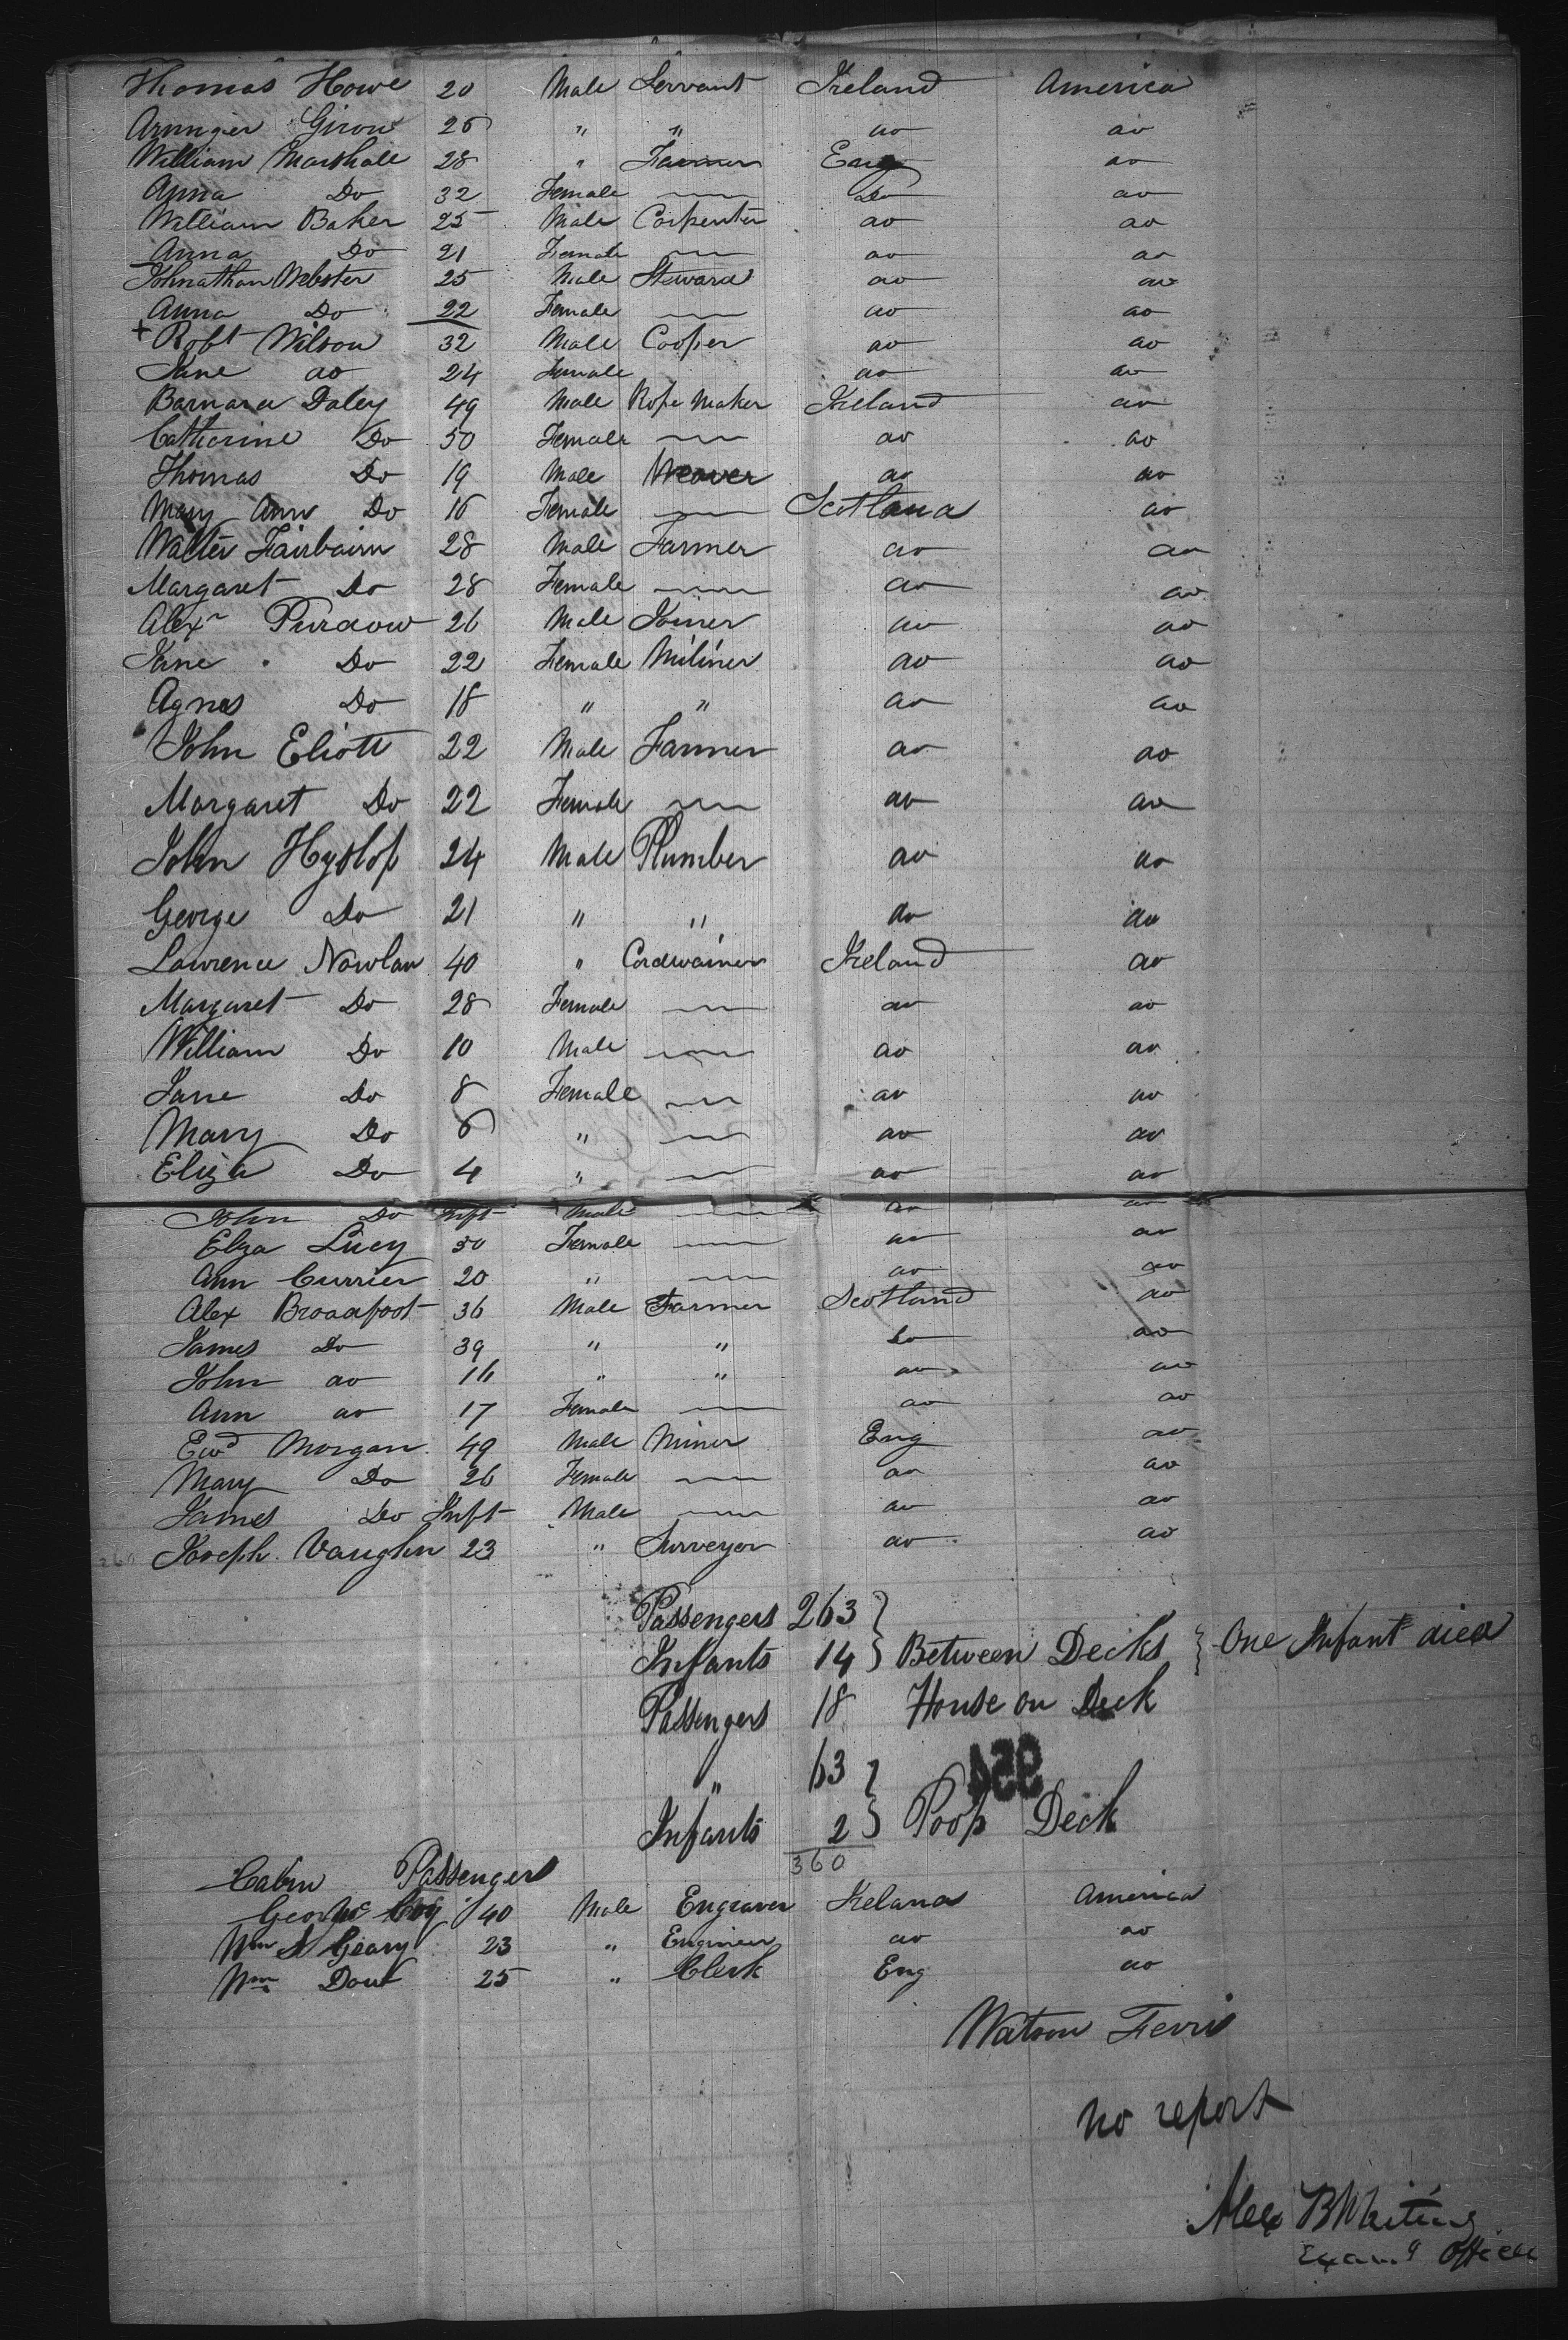 Thomas Howe 20 Male Servant Ireland America
Girow 26 " " do do
William Marshall 28 " Farmer Eng do
Anna Do 32 Female — Do do
William Baker 25 Male Carpenter do do
Anna Do 21 Female — do do
Johnathan Webster 25 Male Steward do do
Anna Do 22 Female — do do
+ Robt Wilson 32 Male Cooper do do
Jane do 24 Female do do
Barnard Daley 49 Male Rope Maker Ireland do
Catherine Do 50 Female — do do
Thomas Do 19 Male Weaver do do
Mary Ann Do 16 Female — Scotland do
Walter Fairbairn 28 Male Farmer do do
Margaret Do 28 Female — do do
Alexr Purdow 26 Male Joiner do do
Jane Do 22 Female Miliner do do
Agnes Do 18 " " do do
John Eliott 22 Male Farmer do do
Margaret Do 22 Female — do do
John Hyslop 24 Male Plumber do do
George Do 21 " " do do
Lawrence Nowlan 40 " Cordwainer Ireland do
Margaret Do 28 Female — do do
William Do 10 Male — do do
Jane Do 8 Female — do do
Mary Do 6 " — do do
Eliza Do 4 " — do do
John Do Inft Male — do do
Elza Lucy 50 Female — do do
Ann Currier 20 " — do do
Alex Broadfoot 36 Male Farmer Scotland do
James Do 39 " " Do do
John do 16 " " do do
Ann do 17 Female — do do
Edwd Morgan 49 Male Miner Eng do
Mary Do 26 Female — do do
James Do Inft Male — do do
Joseph Vaughn 23 " Surveyor do do
Passengers 263 }
Infants 14 } Between Decks { One Infant died
Passengers 18 House on Deck
" 63 }
Infants 2 } Poop Deck
360
Cabin Passengers
Geo Mc Coy 40 Male Engraver Ireland America
Wm S Geary 23 " Engineer do do
Wm Dout 25 " Clerk Eng do
Watson Ferris
no report
Alex B Whiting
Examg Officer